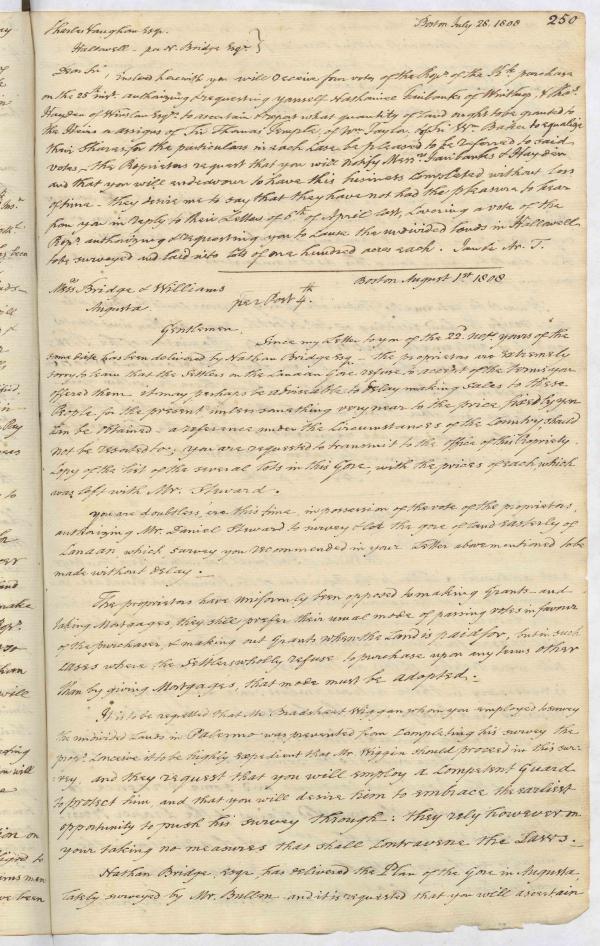 250
Charles Vaughan Esqr. Boston July 28. 1808
Hallowell - per N. Bridge Esqr. }
Dear Sir, inclosed herewith you will receive four votes of the Propr. of the purchase
on the 25th inst. authorizing & requesting yourself Nathaniel Fairbanks of Winthrop, & Thos.
Hayden of Winslow Esqrs. to ascertain & report what quantity of Land ought to be granted to
the Heirs or assigns of Sir Thomas Temple, of Wm. Taylor, & Wm. Baker to equalize
their Shares, for the particulars in each Case be pleased to be referred to said
votes - The Proprietors request that you will notify Messrs. Fairbanks & Hayden
and that you will endeavour to have this business completed without loss
of time - They desire me to say that they have not had the pleasure to hear
from you in reply to their Letter of 6th of April last, Covering a vote of the
Propr. authorizing & requesting you to Cause the undivided lands in Hallowell
to be surveyed and laid into lots of one hundred acres each.
Boston August 1st 1808
Messrs. Bridge & Williams
Augusta. per Post 4th.
Gentlemen.
Since my Letter to you of the 22d. yours of the
same date has been delivered by Nathan Bridge Esq - the proprietors are extremely
sorry to learn that the Settlers on the Canaan Gore refuse to accept of the terms you
offered them. it may perhaps be adviseable to delay making Sales to these
People for the present unless something very near to the price fixed by you
can be obtained - a reference under the Circumstances of the Country should
not be resorted to; you are requested to transmit to the office of this Propriety.
Copy of the list of the several lots in this Gore, with the prices of each, which
was left with Mr. Steward.
you are doubtless, ere this time, in possession of the vote of the proprietors,
authorizing Mr. Daniel Steward to survey & lot the gore of land Easterly of
Canaan, which survey you recommended in your Letter abovementioned to be
made without delay. -
The proprietors have uniformly been opposed to making Grants and
taking Mortgages, they still prefer their usual mode of passing votes in favour
of the purchaser, & making out Grants when the Land is paid for, but in such
Cases where the Settlers wholly refuse to purchase upon any terms other
than by giving Mortgages, that mode must be adopted. -
It is to be regretted that Mr. Bradstreet Wiggan whom you employed to survey
the undivided Lands in Palermo was prevented from Completing his survey the
propr. Conceive it to be highly expedient that Mr. Wiggin should proceed in this sur-
vey, and they request that you will employ a Competent Guard
to protect him, and that you will desire him to embrace the earliest
opportunity to push his survey through: they rely however on
your taking no measures that shall Contravene the Laws. -
Nathan Bridge Esqr. has delivered the Plan of the Gore in Augusta,
lately surveyed by Mr. Bullon and it is requested that you will ascertain